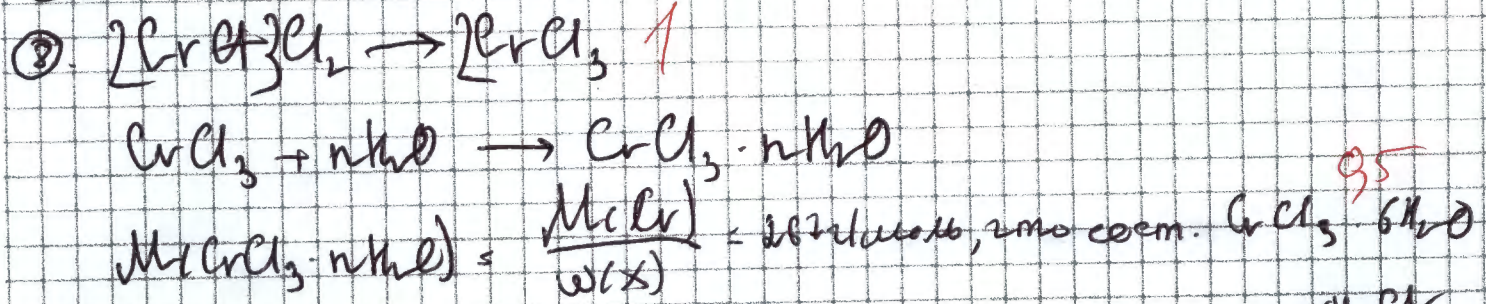 ⑧. 2Cr + 3Cl₂ → 2CrCl₃ 1
CrCl₃ + nH₂O → CrCl₃ · nH₂O
0,5
M(CrCl₃ · nH₂O) = M(Cr) / ω(X) = 267 г/моль, что соот. CrCl₃ · 6H₂O